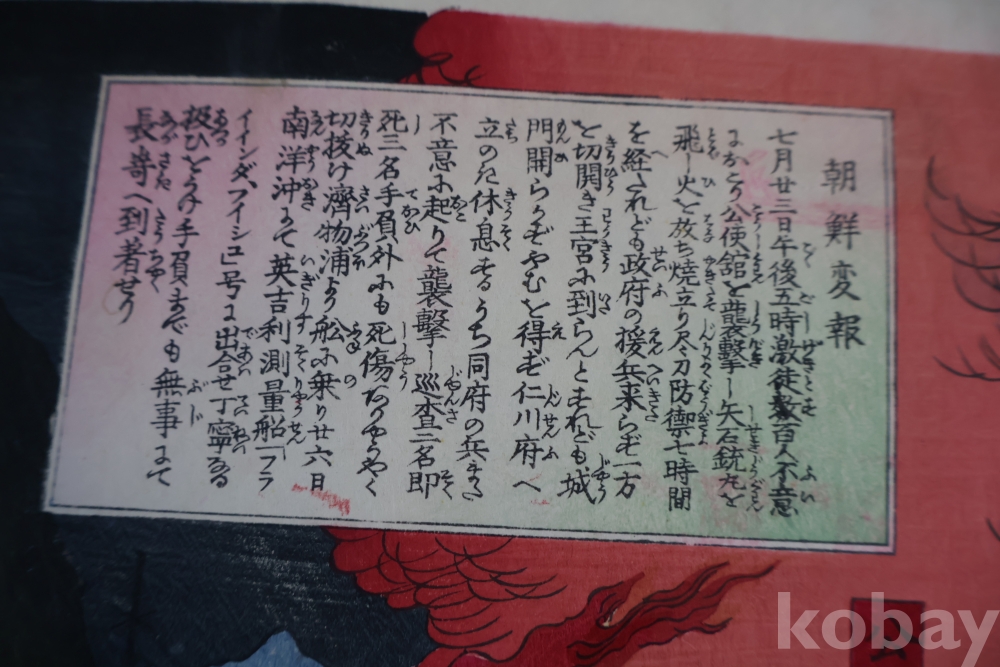 朝鮮変報
七月廿三日午後五時激徒数百人不意
におこり公使舘を襲撃し矢石銃丸を
飛し火を放ち焼立り尽力防禦七時間
を経されども政府の援兵来らず一方
を切開き王宮に到らんとすれども城
門開らかずやむを得ず仁川府へ
立のき休息するうち同府の兵また
不意に起りて襲撃し巡査二名即
死三名手負外にも死傷ありやうやく
切抜け濟物浦より船に乗り廿六日
南洋沖にて英吉利測量船フラ
イインダ、フイシユ号に出合せ丁寧なる
扱ひをうけ手負までも無事にて
長嵜へ到着せり
kobay